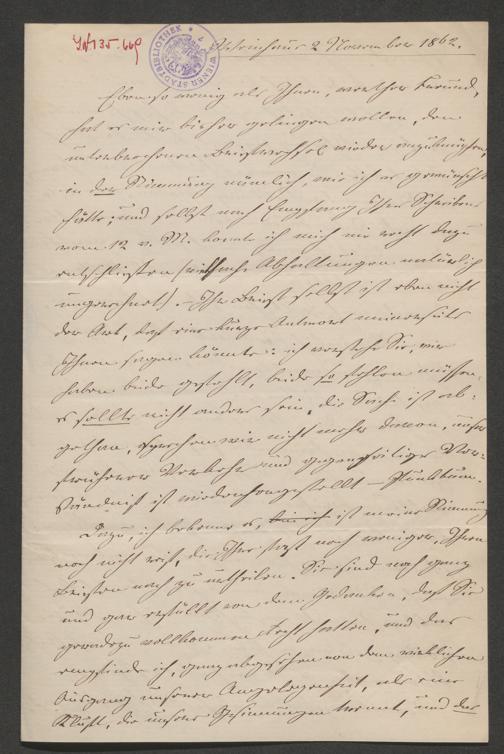 WIENER STADTBIBLIOTHEK
2 November 1862.
Ebenso wenig als Ihnen, werther Freund,
hat es mir bisher gelingen wollen, den
unterbrochenen Briefwechsel wieder anzuknüpfen,
in der Stimmung nämlich, wie ich es gewünscht
hätte; und selbst nach Empfang Ihres Schreibens
vom 12 v. M. konnte ich mich nie recht dazu
entschließen (vielfache Abhaltungen natürlich
ungerechnet). – Ihr Brief selbst ist eben nicht
der Art, daß eine kurze Antwort meinerseits
Ihnen sagen könnte: ich verstehe Sie, wir
haben beide gefehlt, beide so fehlen müssen,
es sollte nicht anders sein, die Sache ist ab-
gethan, sprechen wir nicht mehr davon, unser
früherer Verkehr und gegenseitiges Ver-
ständniß ist wiederhergestellt –
Dazu, ich bekenne es, bin ich ist meine Stimmung
noch nicht reif, die Ihre fast noch weniger, Ihren
Briefen nach zu urtheilen. Sie sind noch ganz
und gar erfüllt von dem Gedanken, daß Sie
geradezu vollkommen Recht hatten, und das
empfinde ich, ganz abgesehen von dem wirklichen
Ausgang unserer Angelegenheit, als eine
Kluft, die unsere Gesinnungen trennt, und das